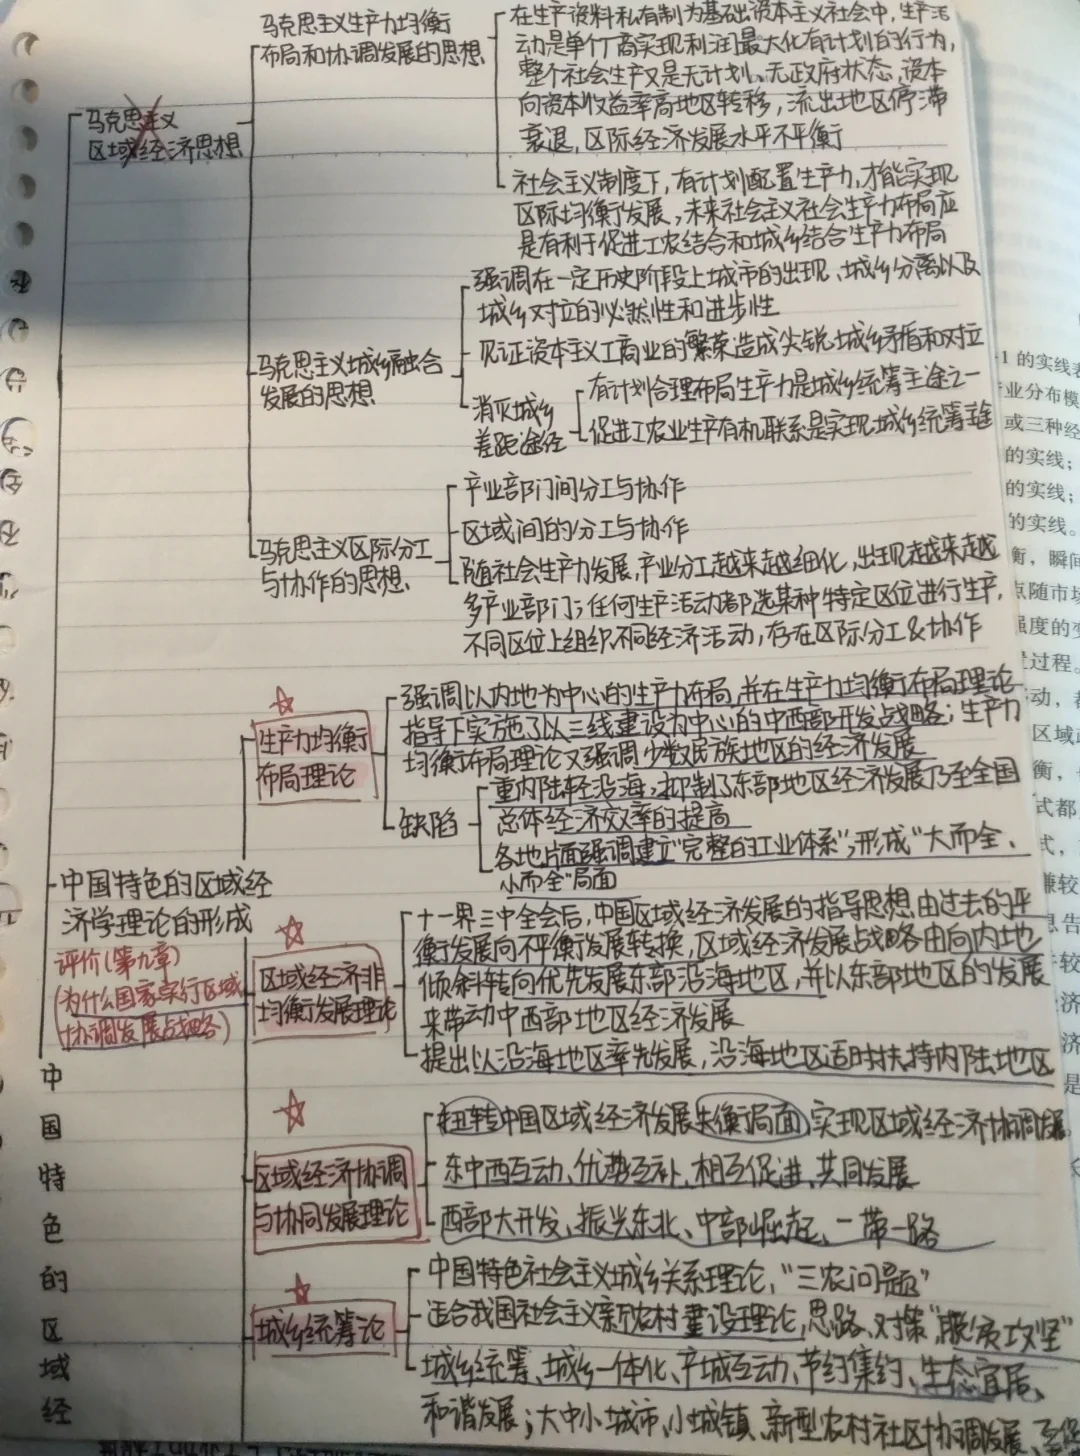 马克思主义生产力均衡
布局和协调发展的思想
在生产资料私有制为基础资本主义社会中,生产活
动是单个厂商实现利润最大化有计划的行为,
整个社会生产又是无计划、无政府状态,资本
向资本收益率高地区转移,流出地区停滞
衰退,区际经济发展水平不平衡
马克思主义
区域经济思想
社会主义制度下,有计划配置生产力,才能实现
区际均衡发展,未来社会主义社会生产力布局应
是有利于促进工农结合和城乡结合生产力布局
强调在一定历史阶段上城市的出现、城乡分离以及
城乡对立的必然性和进步性
马克思主义城乡融合
发展的思想
见证资本主义工商业的繁荣造成尖锐城乡矛盾和对立
消灭城乡
差距途径
有计划合理布局生产力是城乡统筹主途之一
促进工农业生产有机联系是实现城乡统筹主途
马克思主义区际分工
与协作的思想
产业部门间分工与协作
区域间的分工与协作
随社会生产力发展,产业分工越来越细化,出现越来越
多产业部门;任何生产活动都选某种特定区位进行生产,
不同区位上组织不同经济活动,存在区际分工&协作
生产力均衡
布局理论
强调以内地为中心的生产力布局,并在生产力均衡布局理论
指导下实施了以三线建设为中心的中西部开发战略;生产力
均衡布局理论又强调少数民族地区的经济发展
缺陷
重内陆轻沿海,抑制了东部地区经济发展乃至全国
总体经济效率的提高
各地片面强调建立“完整的工业体系”,形成“大而全、
小而全”局面
中国特色的区域经
济学理论的形成
评价(第九章)
(为什么国家实行区域
协调发展战略)
区域经济非
均衡发展理论
十一界三中全会后,中国区域经济发展的指导思想由过去的平
衡发展向不平衡发展转换,区域经济发展战略由向内地
倾斜转向优先发展东部沿海地区,并以东部地区的发展
来带动中西部地区经济发展
提出以沿海地区率先发展,沿海地区适时扶持内陆地区
区域经济协调
与协同发展理论
扭转中国区域经济发展失衡局面,实现区域经济协调发展
东中西互动、优势互补、相互促进、共同发展
西部大开发、振兴东北、中部崛起、一带一路
城乡统筹论
中国特色社会主义城乡关系理论,“三农问题”
适合我国社会主义新农村建设理论,思路、对策“脱贫攻坚”
城乡统筹、城乡一体化、产城互动、节约集约、生态宜居、
和谐发展;大中小城市、小城镇、新型农村社区协调发展、
中
国
特
色
的
区
域
经
-1 的实线表
业分布模
或三种经
的实线;
的实线;
的实线。
衡,瞬间
点随市场
强度的变
过程。
动,
区域政
衡,
式都
式,
兼较
息告
较
济
济
是